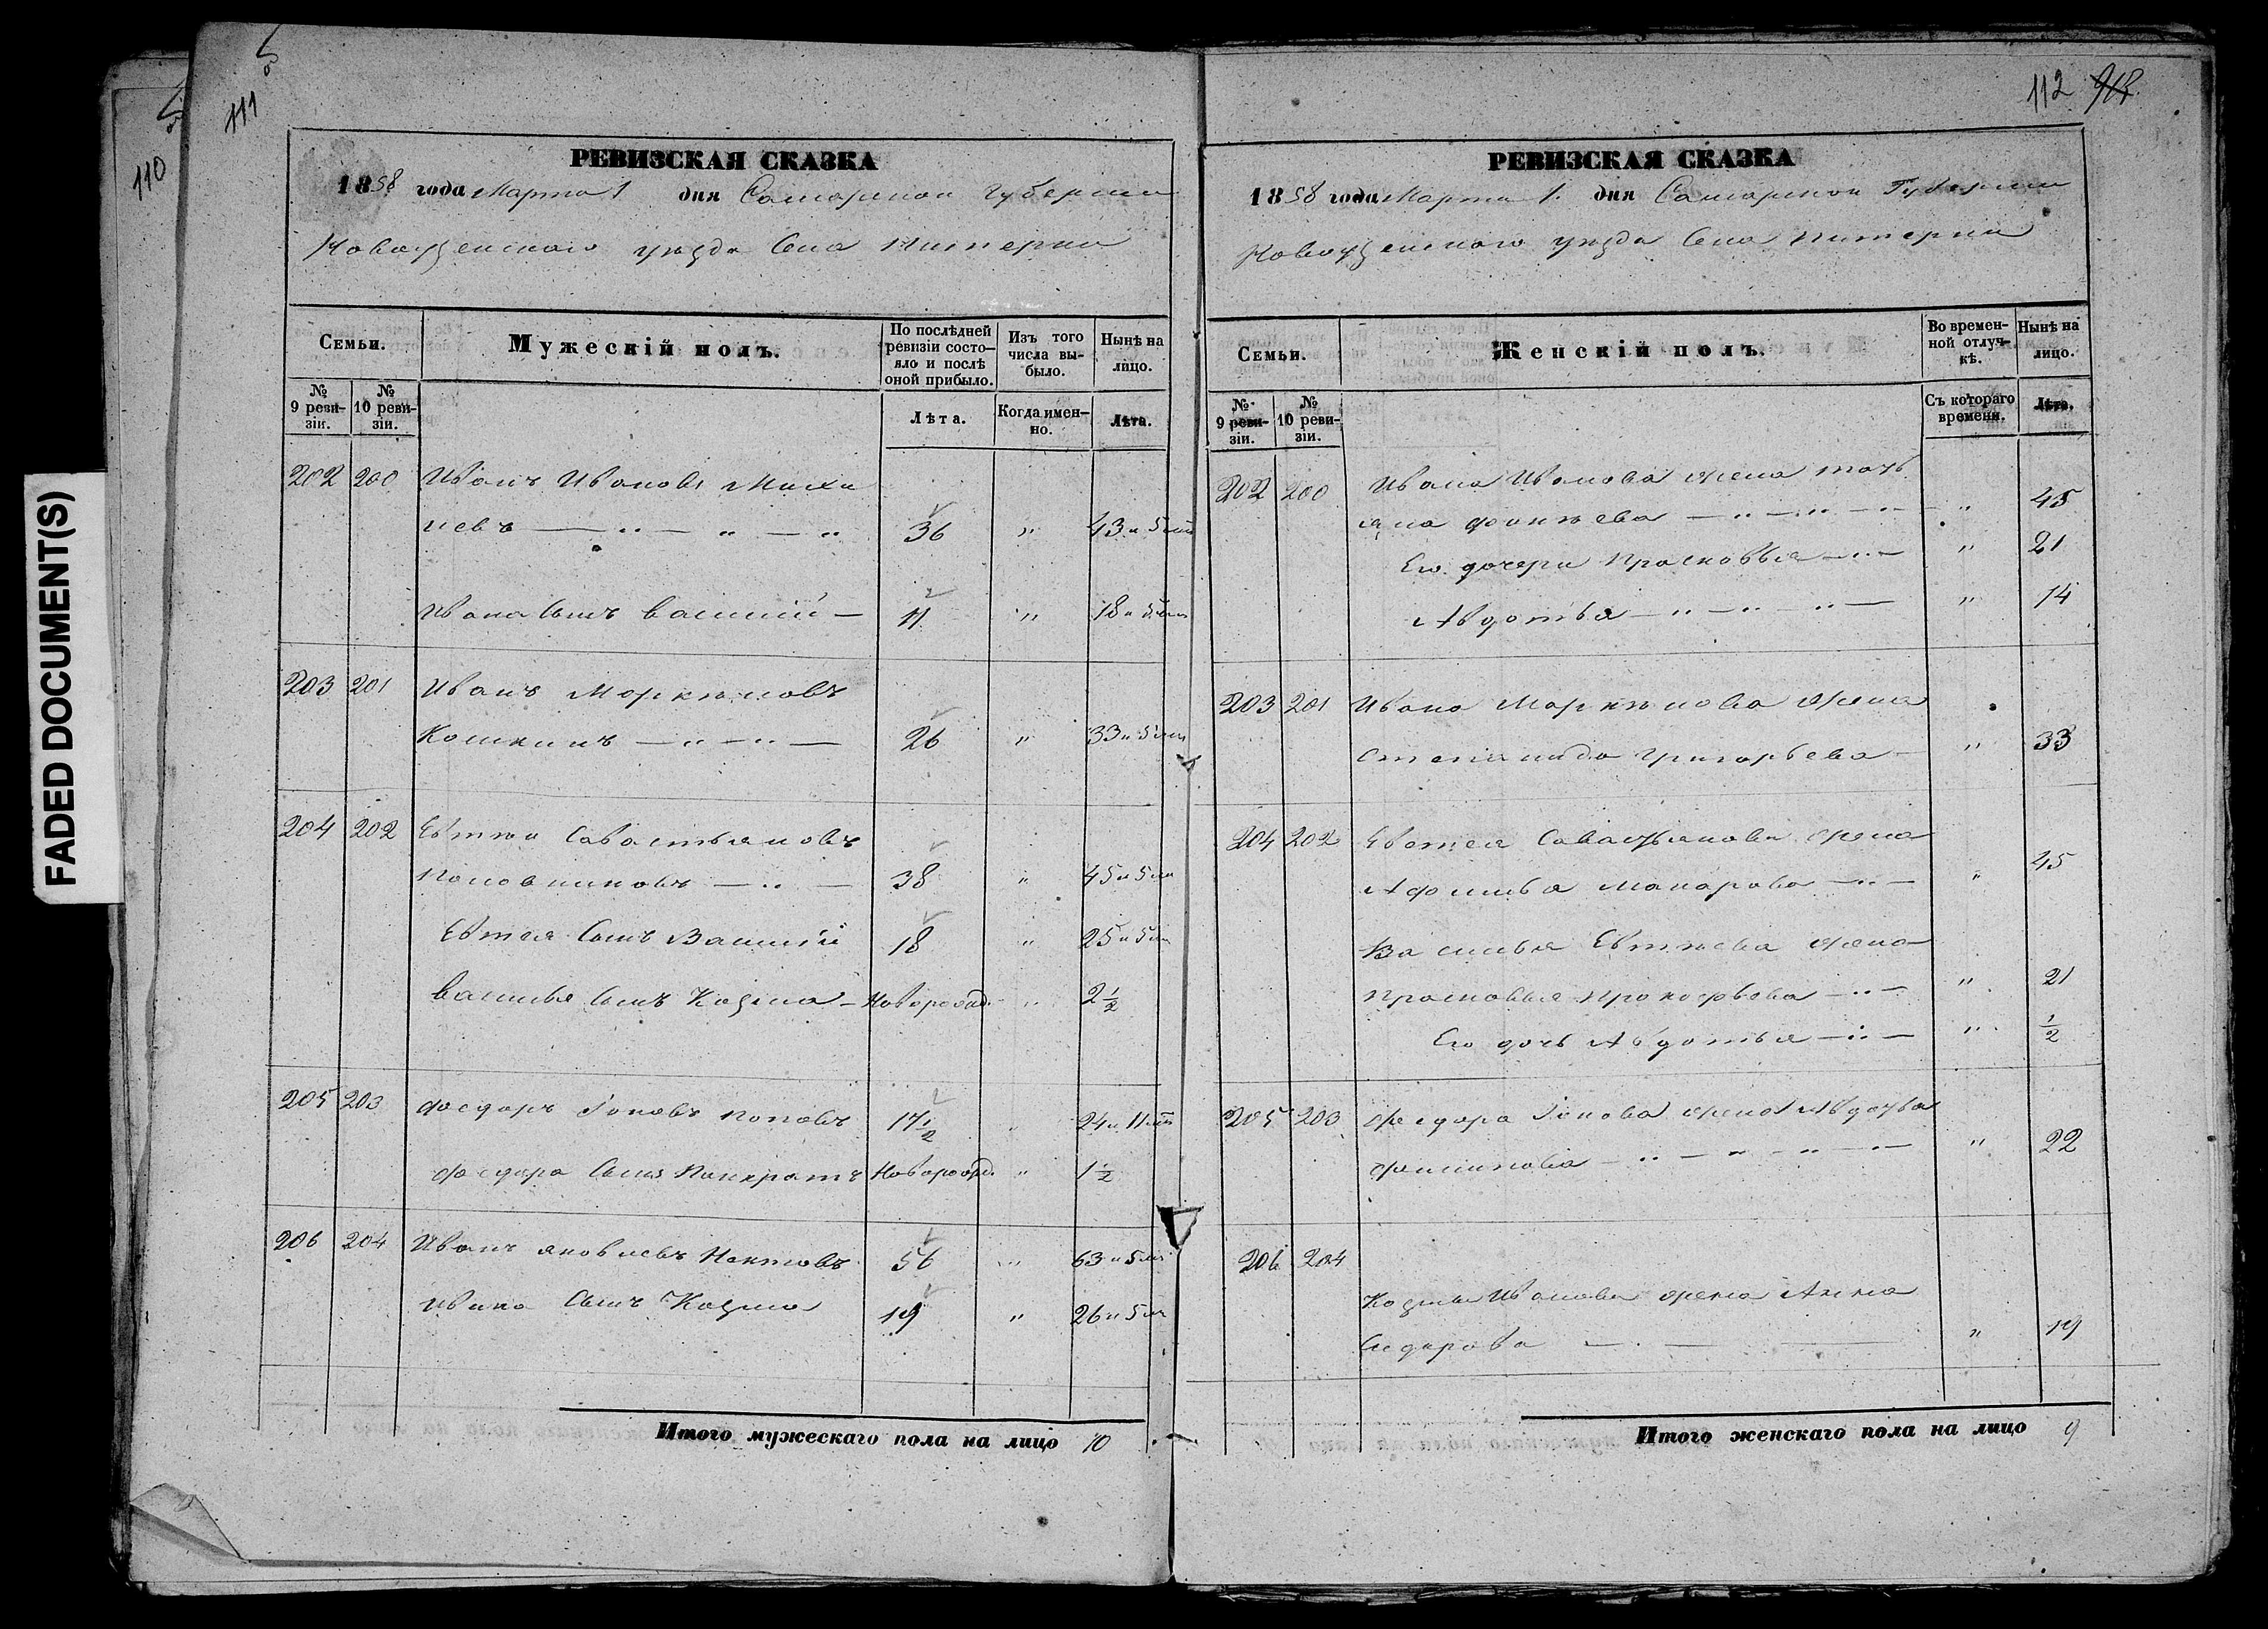 FADED DOCUMENT(S)
110
111
РЕВИЗСКАЯ СКАЗКА
1858 года Марта 1 дня Самарской Губернии
Новоузенскаго уѣзда Села Питерки
Семьи.
Мужескій полъ.
По послѣдней ревизіи состояло и послѣ оной прибыло.
Изъ того числа выбыло.
Нынѣ на лицо.
№ 9 ревизіи.
№ 10 ревизіи.
Лѣта.
Когда именно.
Лѣта.
202 200 Иванъ Ивановъ
36 " 43 и 5
Ивана Сынъ Василій — 11 " 18 и 5
203 201 Иванъ
26 " 33 и 5
204 202 Евтѣй Савастьяновъ
38 " 45 и 5
Евтея Сынъ Василій 18 " 25 и 5
Василья Сынъ Козма — Новорожд. " 2 1/2
205 203 Федоръ Іоновъ Поповъ 17 1/2 24 и 11
Федора Сынъ Панкратъ Новорожд. " 1 1/2
206 204 Иванъ Яковлевъ 56 " 63 и 5
Ивана Сынъ Козма 19 " 26 и 5
Итого мужескаго пола на лицо 10
112
РЕВИЗСКАЯ СКАЗКА
1858 года Марта 1. дня Самарской Губернии
Новоузенскаго уѣзда Села Питерки
Семьи.
Женскій полъ.
Во временной отлучкѣ.
Нынѣ на лицо.
№ 9 ревизіи.
№ 10 ревизіи.
Съ котораго времени.
Лѣта.
202 200 Ивана Иванова жена Тать
яна " 45
Его дочери Прасковья " 21
Авдотья " 14
203 201 Ивана жена
Степанида Григорьева " 33
204 202 Евтея Савастьянова жена
Афимья Макарова " 45
Василья Евтѣева жена
Прасковья Прокофьева " 21
Его дочь Авдотья " 1/2
205 203 Федора Іонова жена Авдотья
" 22
206 204
Козмы Иванова жена Анна
Сидорова " 19
Итого женскаго пола на лицо 9